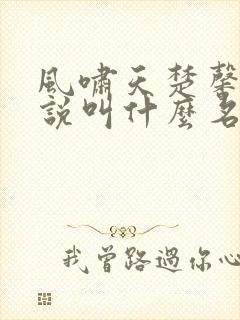 風嘯天楚馨
說叫什麼名
我曾路過你心